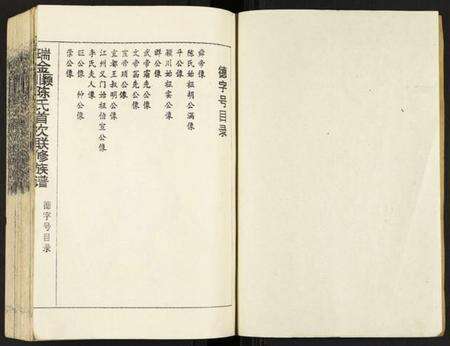 德字号目录
舜帝像
陈氏始祖胡公满像
平公像
颍川始祖寔公像
群公像
武帝霸先公像
文帝蒨公像
宣帝顼公像
宜都王叔明公像
江州义门始祖伯宣公像
李氏夫人像
旺公像 种公像
崇公像
瑞金县陈氏首次联修族谱
德字号目录